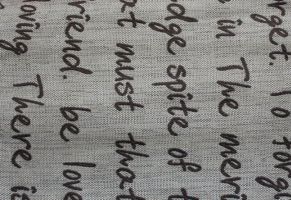 rget. To forg
s in The meri
dge spite of t
at must that
riend. be love
loving There is